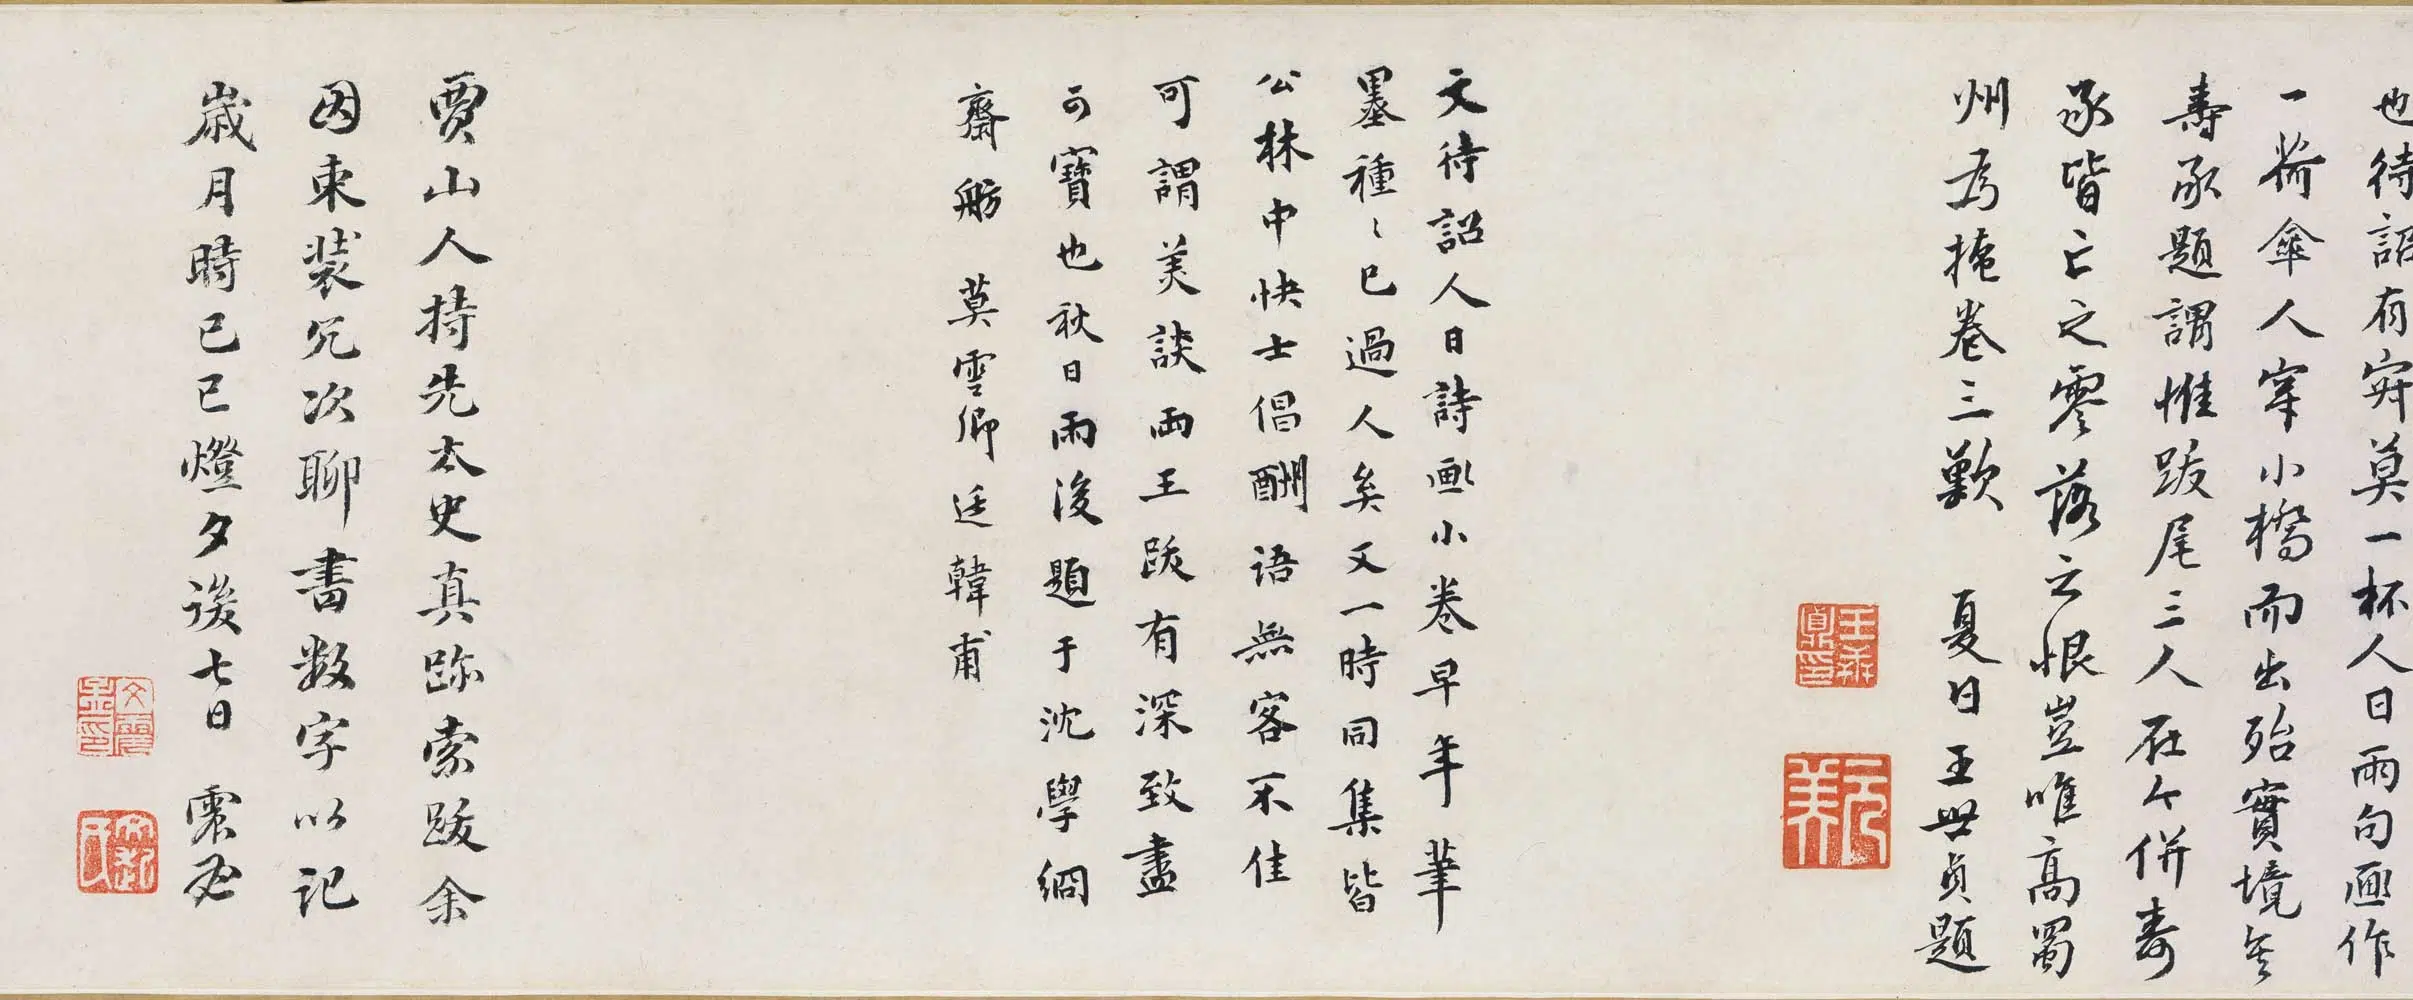 也待詔有穽莫一杯人日雨句畫作
一蒋傘人穿小橋而出殆實境無
壽承題謂惟跋尾三人在今併壽
承皆亡之零落之恨豈唯高蜀
州為掩卷三歎 夏日王世貞題
文待詔人日詩画小卷早年筆
墨種〻已過人矣又一時同集皆
公林中快士倡酬語無客不佳
可謂美談兩王跋有深致盡
可寶也秋日雨後題于沈學網
齋舫 莫雲卿廷韓甫
賈山人持先太史真跡索跋余
因束裝冗次聊書数字以記
歲月時己巳燈夕後七日 震孟